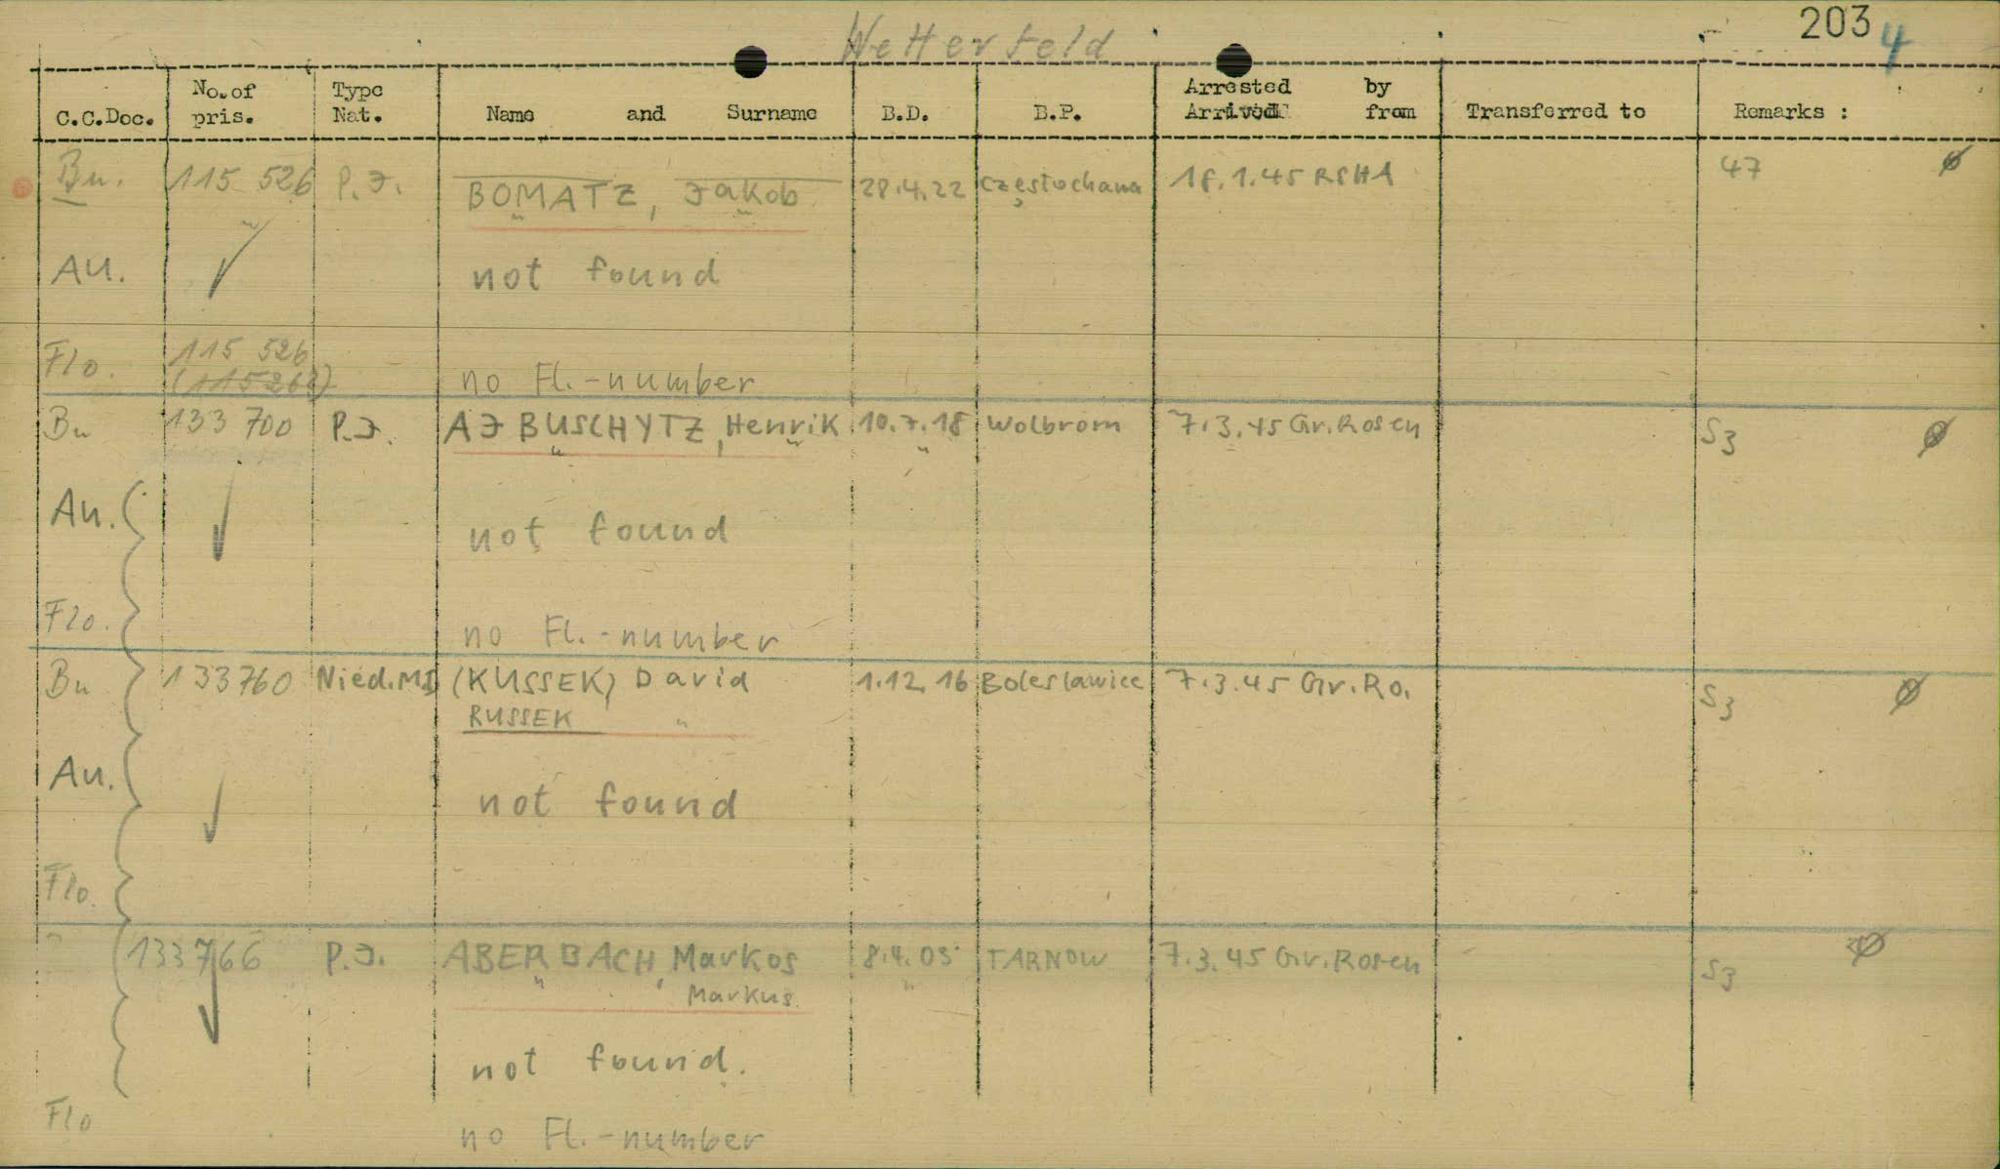 Wetterfeld
203 4
C.C.Doc. No. of pris. Type Nat. Name and Surname B.D. B.P. Arrested by Arrived from Transferred to Remarks :
Bu. 115 526 P.J. BOMATZ, Jakob 28.4.22 Częstochawa 18.1.45 RSHA 47
Au. not found
Flo. 115 526
no Fl.-number
Bu 133 700 P.J. AJBUSCHYTZ, Henrik 10.7.18 Wolbrom 7.3.45 Gr.Rosen S3
Au. not found
Flo. no Fl.-number
Bu 133760 Nied.MJ (KUSSEK) David 1.12.16 Boleslawice 7.3.45 Gr.Ro. S3
RUSSEK "
Au. not found
Flo.
" 133766 P.J. ABERBACH, Markos 8.4.03 TARNOW 7.3.45 Gr.Rosen S3
Markus
not found.
Flo no Fl.-number